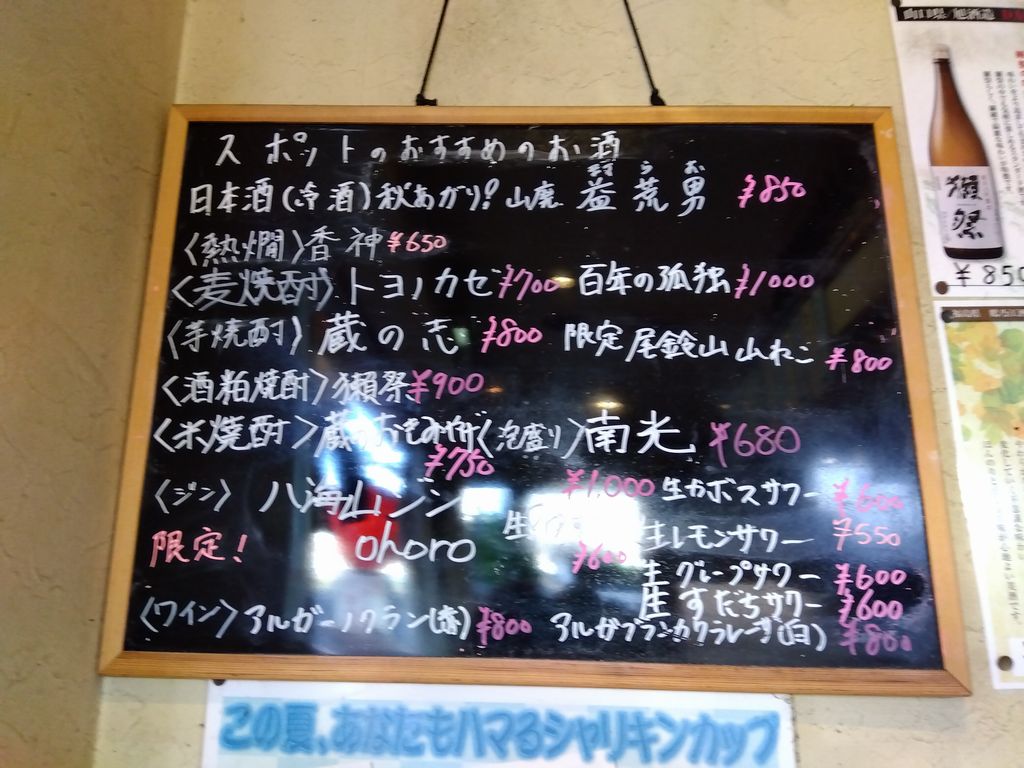 スポットのおすすめのお酒
日本酒(冷酒)秋あがり!山鹿 益荒男 ¥850
ます ら お
〈熱燗〉香神¥650
〈麦焼酎〉トヨノカゼ¥700 百年の孤独¥1000
〈芋焼酎〉蔵の志 ¥800 限定尾鈴山山ねこ ¥800
〈酒粕焼酎〉獺祭¥900
〈米焼酎〉蔵 〈泡盛り〉南光 ¥680
¥750
〈ジン〉八海山ジン ¥1,000 生カボスサワー ¥600
限定! ohoro
生 ¥600 生レモンサワー ¥550
生グレープサワー ¥600
生すだちサワー ¥600
〈ワイン〉アルガーノクラン(赤) ¥800 アルガブランカクラレーザ(白) ¥800
この夏、あなたもハマるシャリキンカップ
山口県 旭酒造
獺祭
¥850